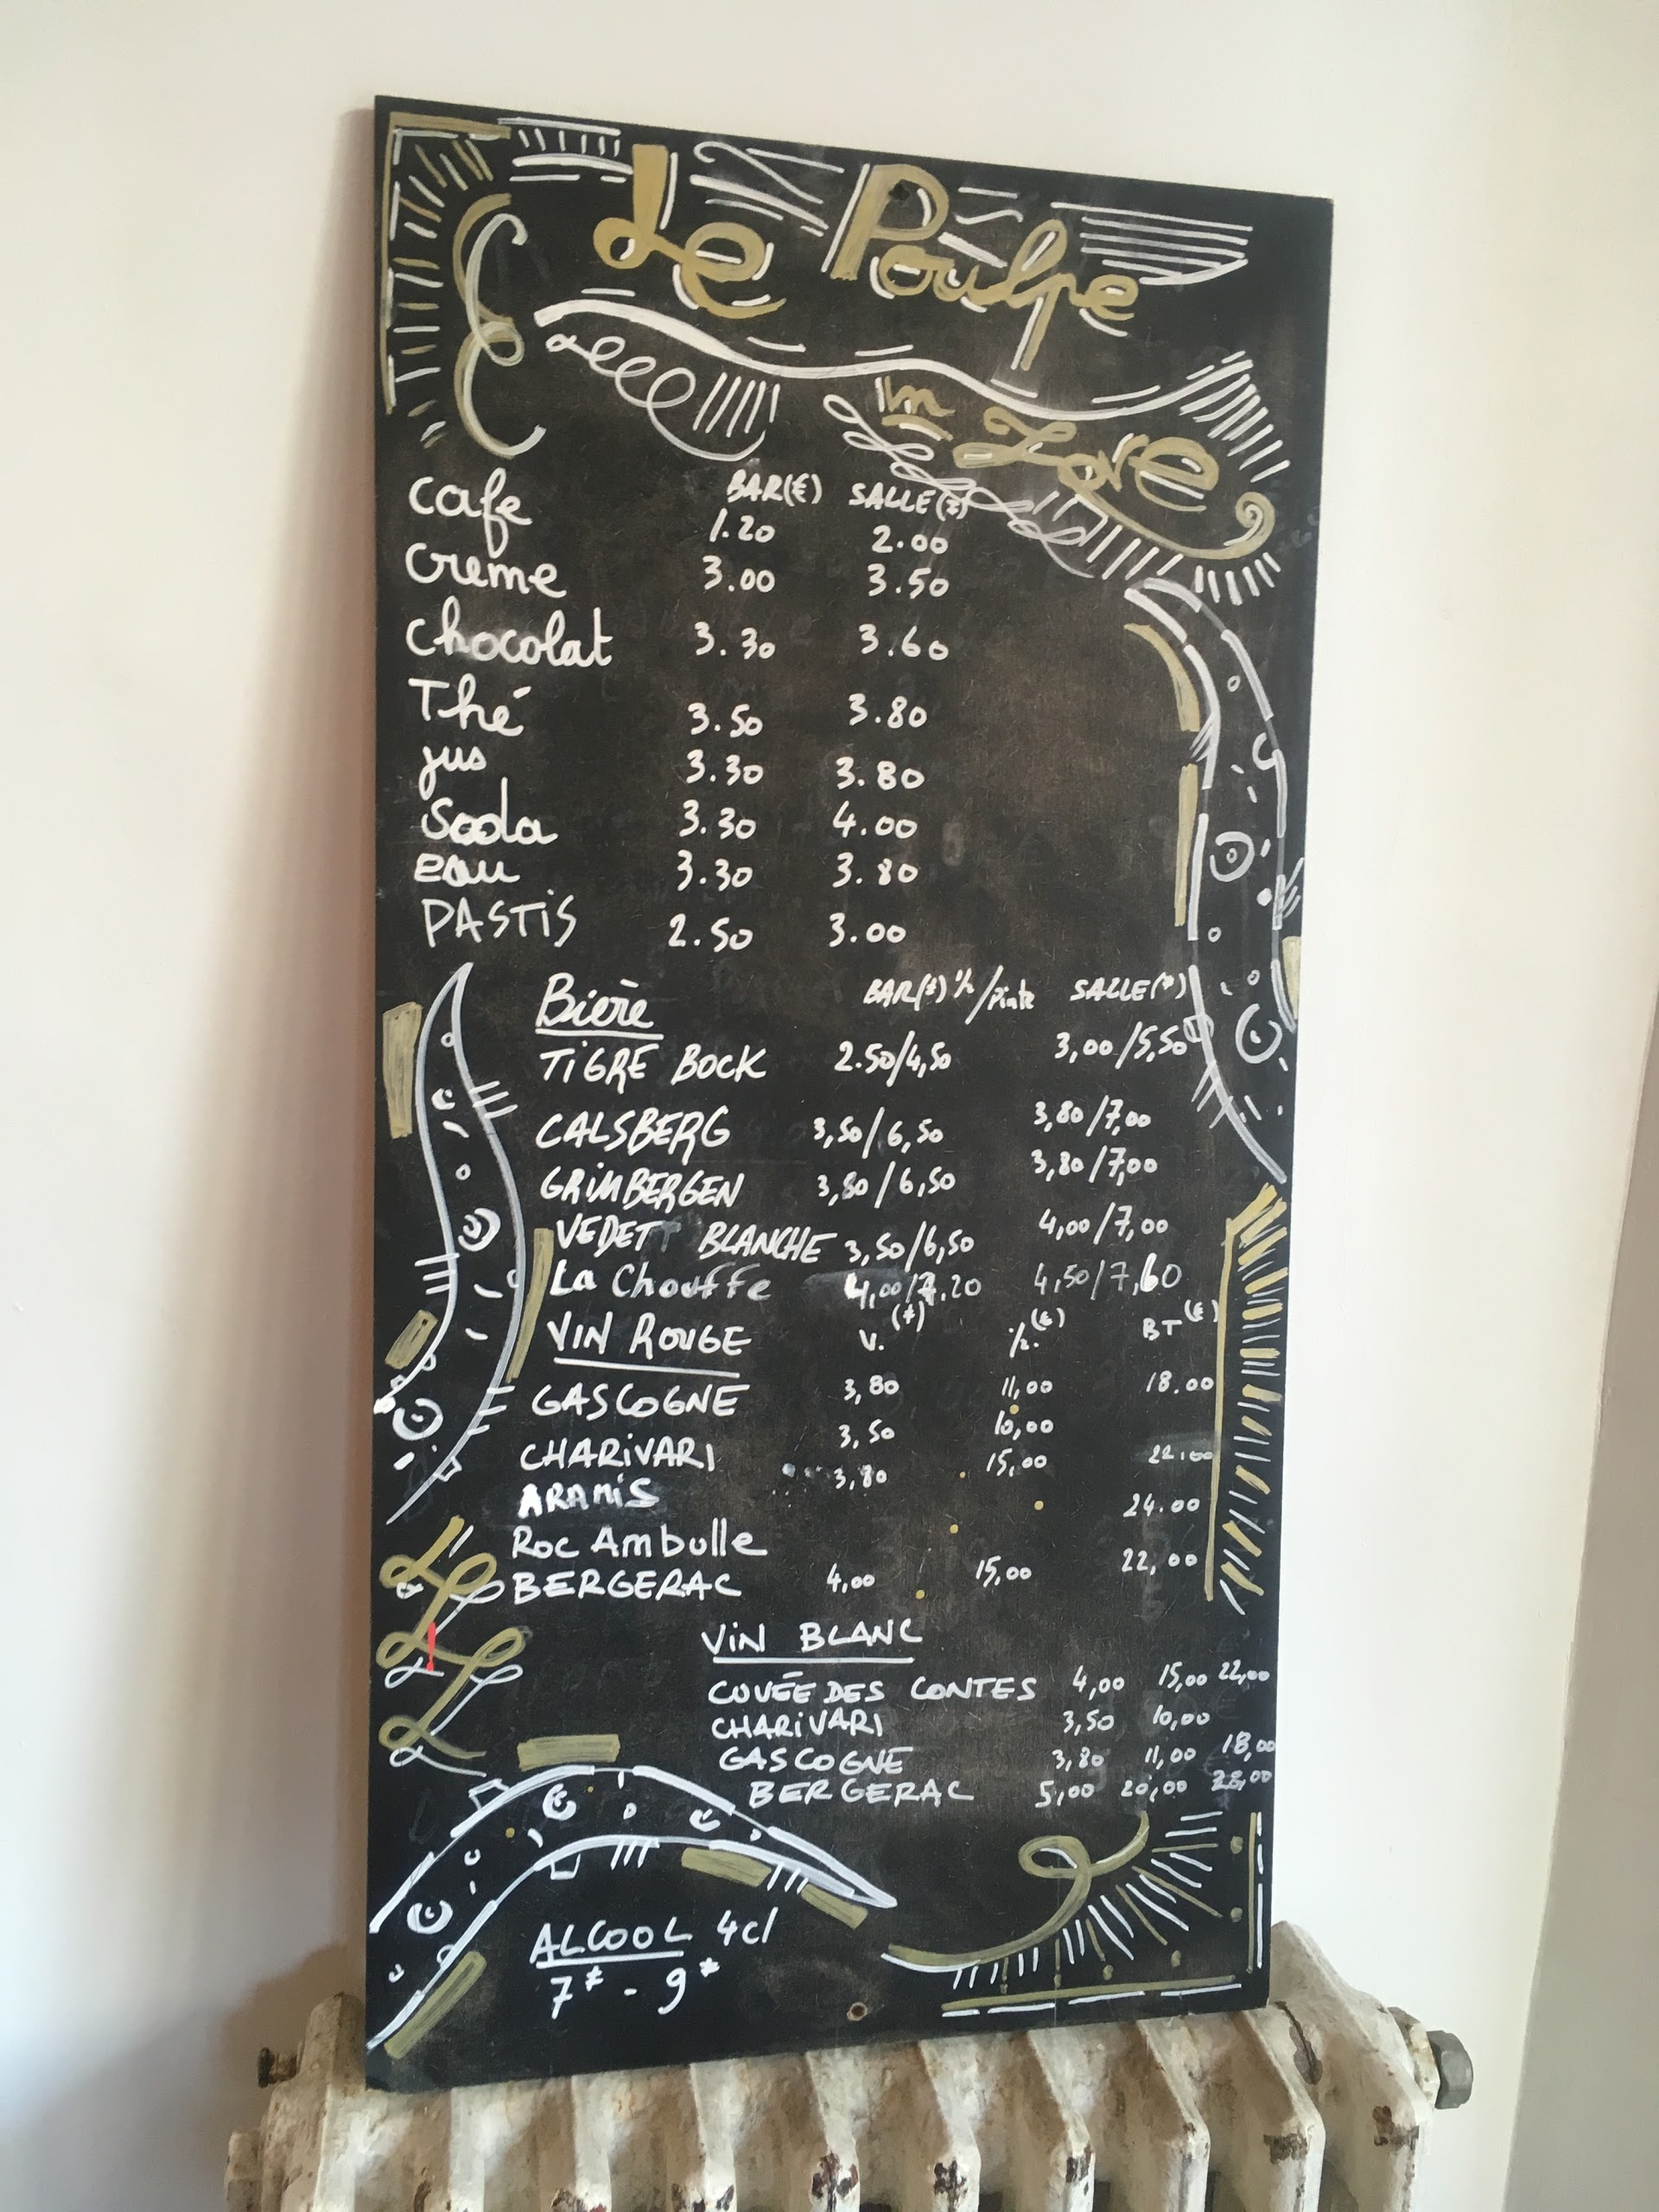 Le Poulpe
in Love
BAR(€) SALLE(€)
Cafe 1.20 2.00
Creme 3.00 3.50
Chocolat 3.30 3.60
Thé 3.50 3.80
jus 3.30 3.80
Soda 3.30 4.00
eau 3.30 3.80
PASTiS 2.50 3.00
Bière BAR(€) ½/Pinte SALLE(€)
TiGRE BOCK 2.50/4,50 3,00/5,50
CALSBERG 3,50/6,50 3,80/7,00
GRiMBERGEN 3,80/6,50 3,80/7,00
VEDETT BLANCHE 3,50/6,50 4,00/7,00
La Chouffe 4,00/7.20 4,50/7,60
ViN ROUGE V.(€) P.(€) BT(€)
GASCOGNE 3,80 11,00 18.00
CHARiVARi 3,50 10,00
ARAMiS 3,80 15,00 22.00
Roc Ambulle 24.00
BERGERAC 4,00 15,00 22,00
ViN BLANC
CUVÉE DES CONTES 4,00 15,00 22,00
CHARiVARi 3,50 10,00
GASCOGNE 3,80 11,00 18,00
BERGERAC 5,00 20,00 28,00
ALCOOL 4cl
7€ - 9€